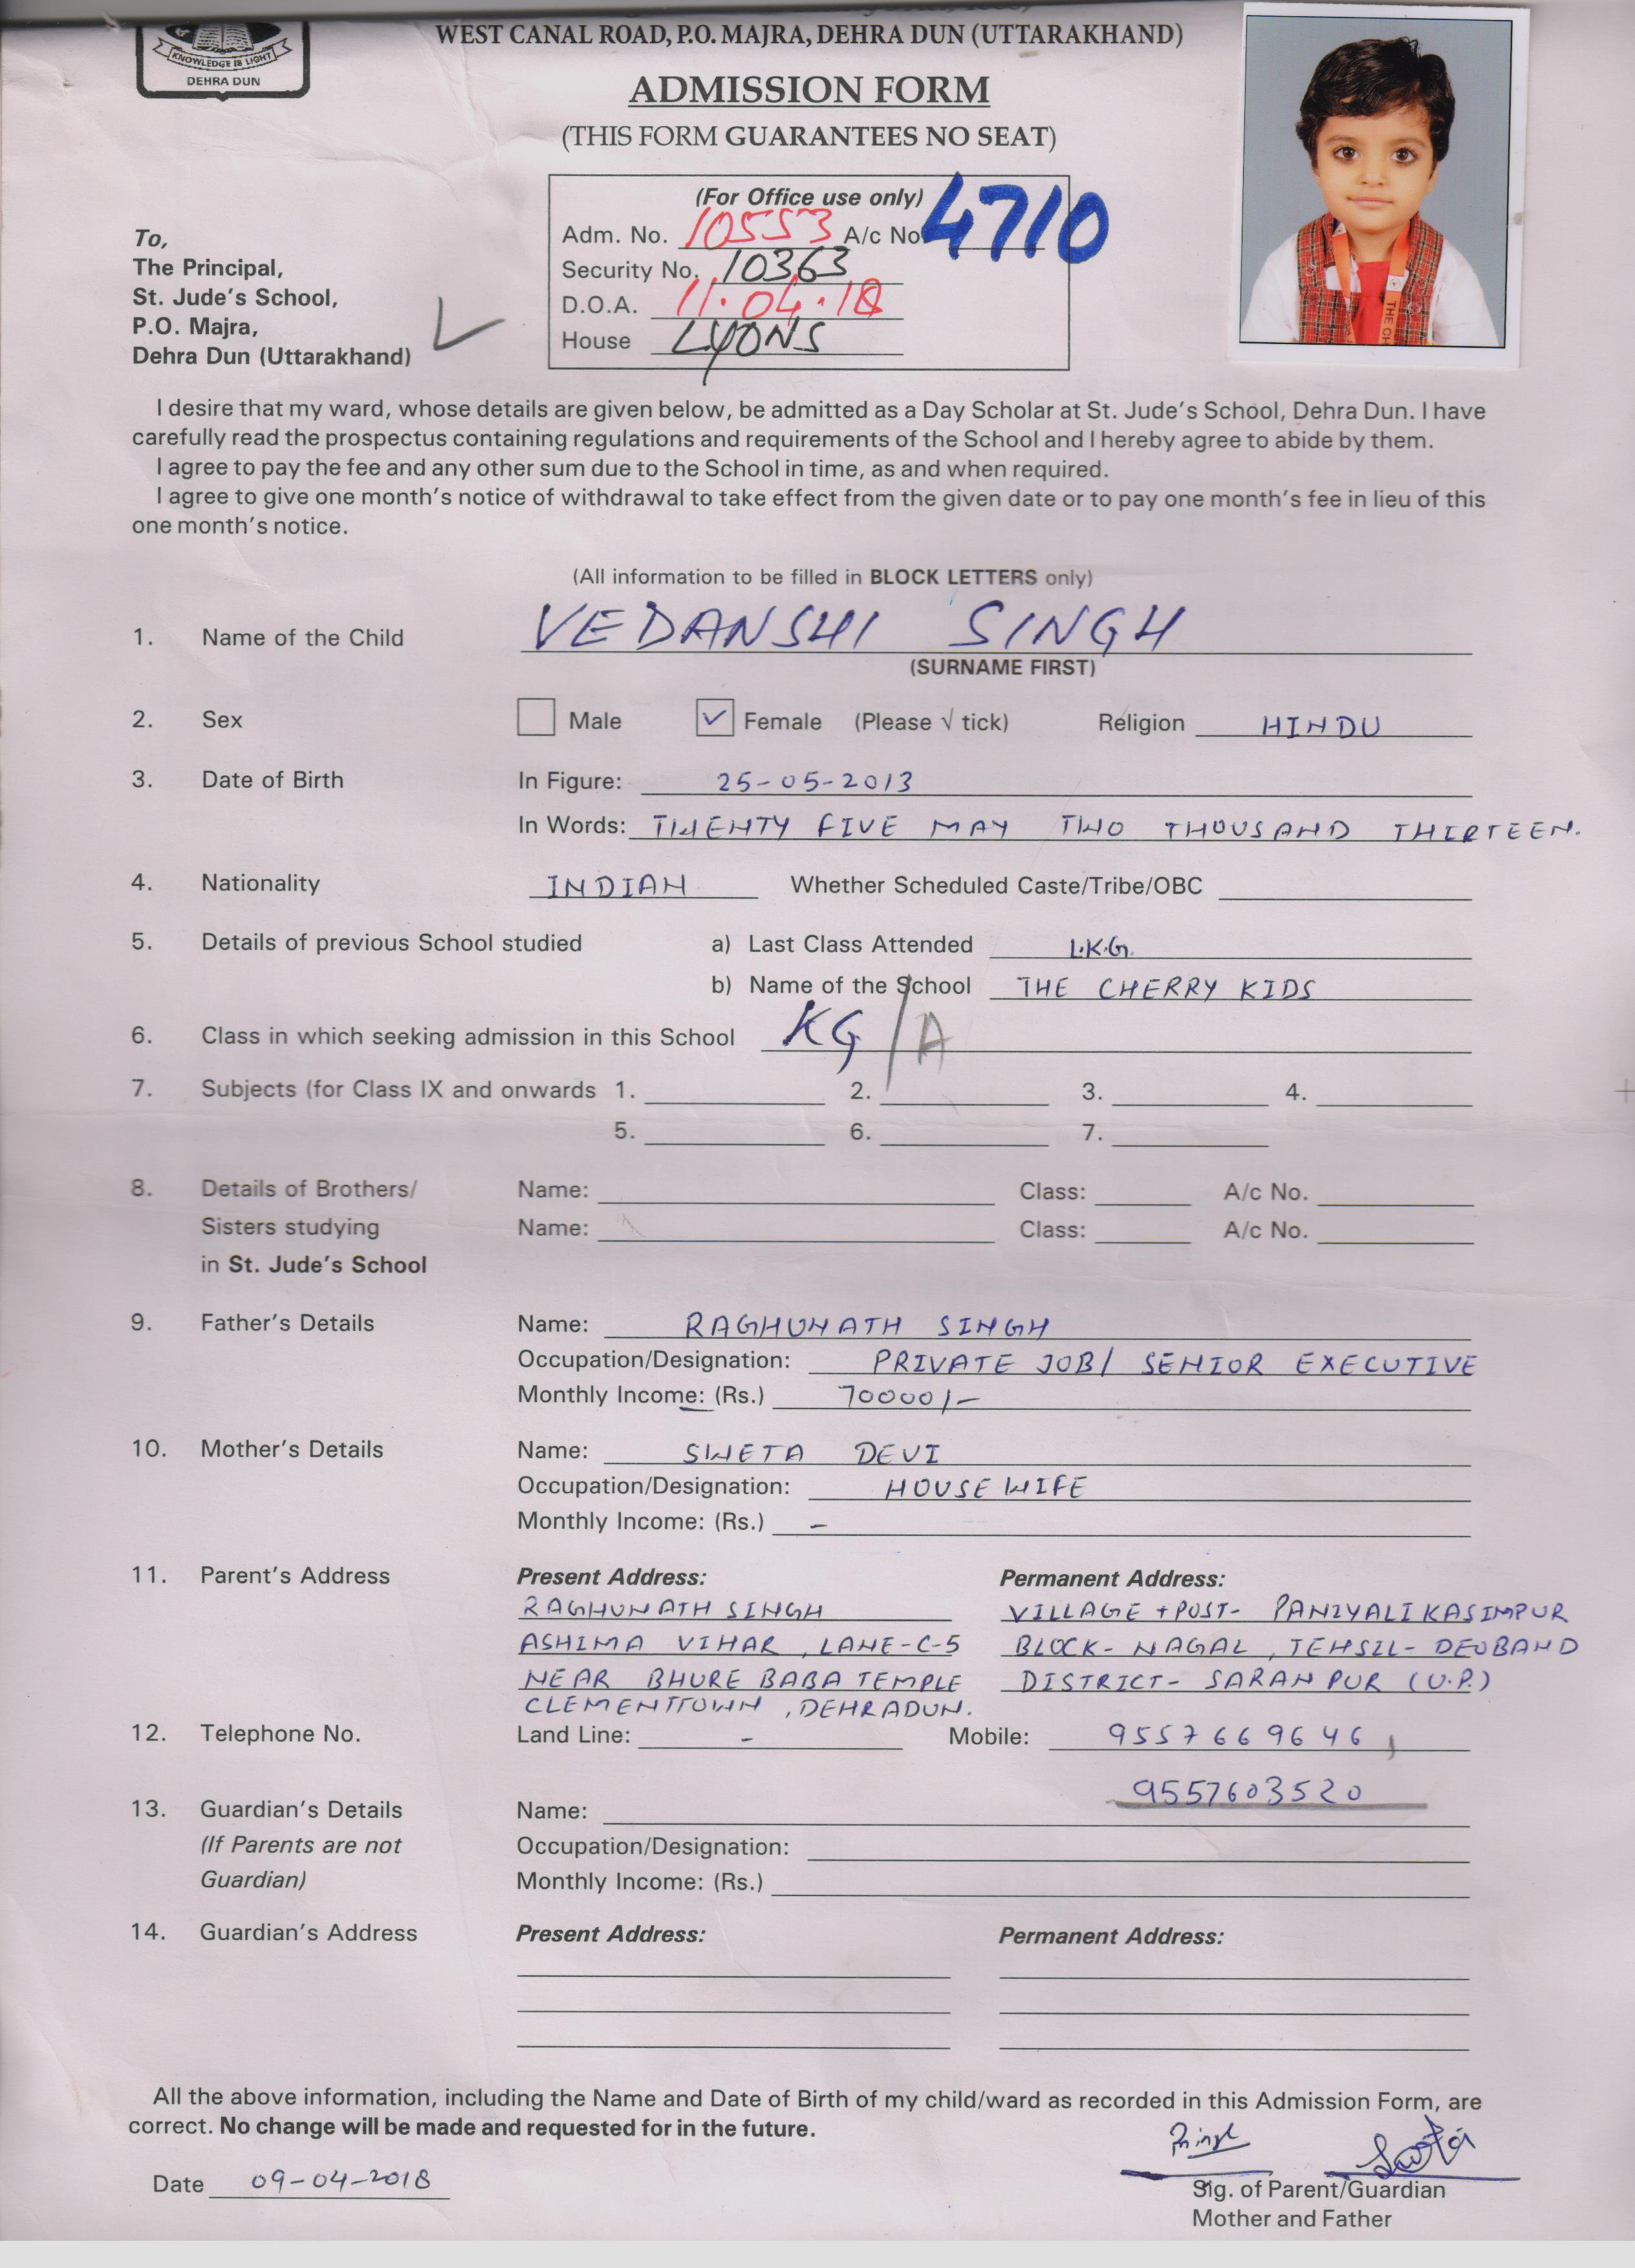 KNOWLEDGE IS LIGHT
DEHRA DUN
WEST CANAL ROAD, P.O. MAJRA, DEHRA DUN (UTTARAKHAND)
ADMISSION FORM
(THIS FORM GUARANTEES NO SEAT)
(For Office use only)
Adm. No. 10553 A/c No. 4710
Security No. 10363
D.O.A. 11.04.18
House LYONS
To,
The Principal,
St. Jude's School,
P.O. Majra,
Dehra Dun (Uttarakhand)
THE CH
I desire that my ward, whose details are given below, be admitted as a Day Scholar at St. Jude's School, Dehra Dun. I have
carefully read the prospectus containing regulations and requirements of the School and I hereby agree to abide by them.
I agree to pay the fee and any other sum due to the School in time, as and when required.
I agree to give one month's notice of withdrawal to take effect from the given date or to pay one month's fee in lieu of this
one month's notice.
(All information to be filled in BLOCK LETTERS only)
1. Name of the Child VEDANSHI SINGH
(SURNAME FIRST)
2. Sex Male ✓ Female (Please √ tick) Religion HINDU
3. Date of Birth In Figure: 25-05-2013
In Words: TWENTY FIVE MAY TWO THOUSAND THIRTEEN.
4. Nationality INDIAN Whether Scheduled Caste/Tribe/OBC
5. Details of previous School studied a) Last Class Attended L.K.G.
b) Name of the School THE CHERRY KIDS
6. Class in which seeking admission in this School KG/A
7. Subjects (for Class IX and onwards 1. 2. 3. 4.
5. 6. 7.
8. Details of Brothers/ Name: Class: A/c No.
Sisters studying Name: Class: A/c No.
in St. Jude's School
9. Father's Details Name: RAGHUNATH SINGH
Occupation/Designation: PRIVATE JOB/ SENIOR EXECUTIVE
Monthly Income: (Rs.) 70000/-
10. Mother's Details Name: SWETA DEVI
Occupation/Designation: HOUSE WIFE
Monthly Income: (Rs.) -
11. Parent's Address Present Address: Permanent Address:
RAGHUNATH SINGH VILLAGE + POST- PANIYALI KASIMPUR
ASHIMA VIHAR, LANE-C-5 BLOCK- NAGAL, TEHSIL- DEOBAND
NEAR BHURE BABA TEMPLE DISTRICT- SARANPUR (U.P.)
CLEMENTTOWN, DEHRADUN.
12. Telephone No. Land Line: - Mobile: 9557669646,
9557603520
13. Guardian's Details Name:
(If Parents are not Occupation/Designation:
Guardian) Monthly Income: (Rs.)
14. Guardian's Address Present Address: Permanent Address:
All the above information, including the Name and Date of Birth of my child/ward as recorded in this Admission Form, are
correct. No change will be made and requested for in the future.
Date 09-04-2018
Sig. of Parent/Guardian
Mother and Father